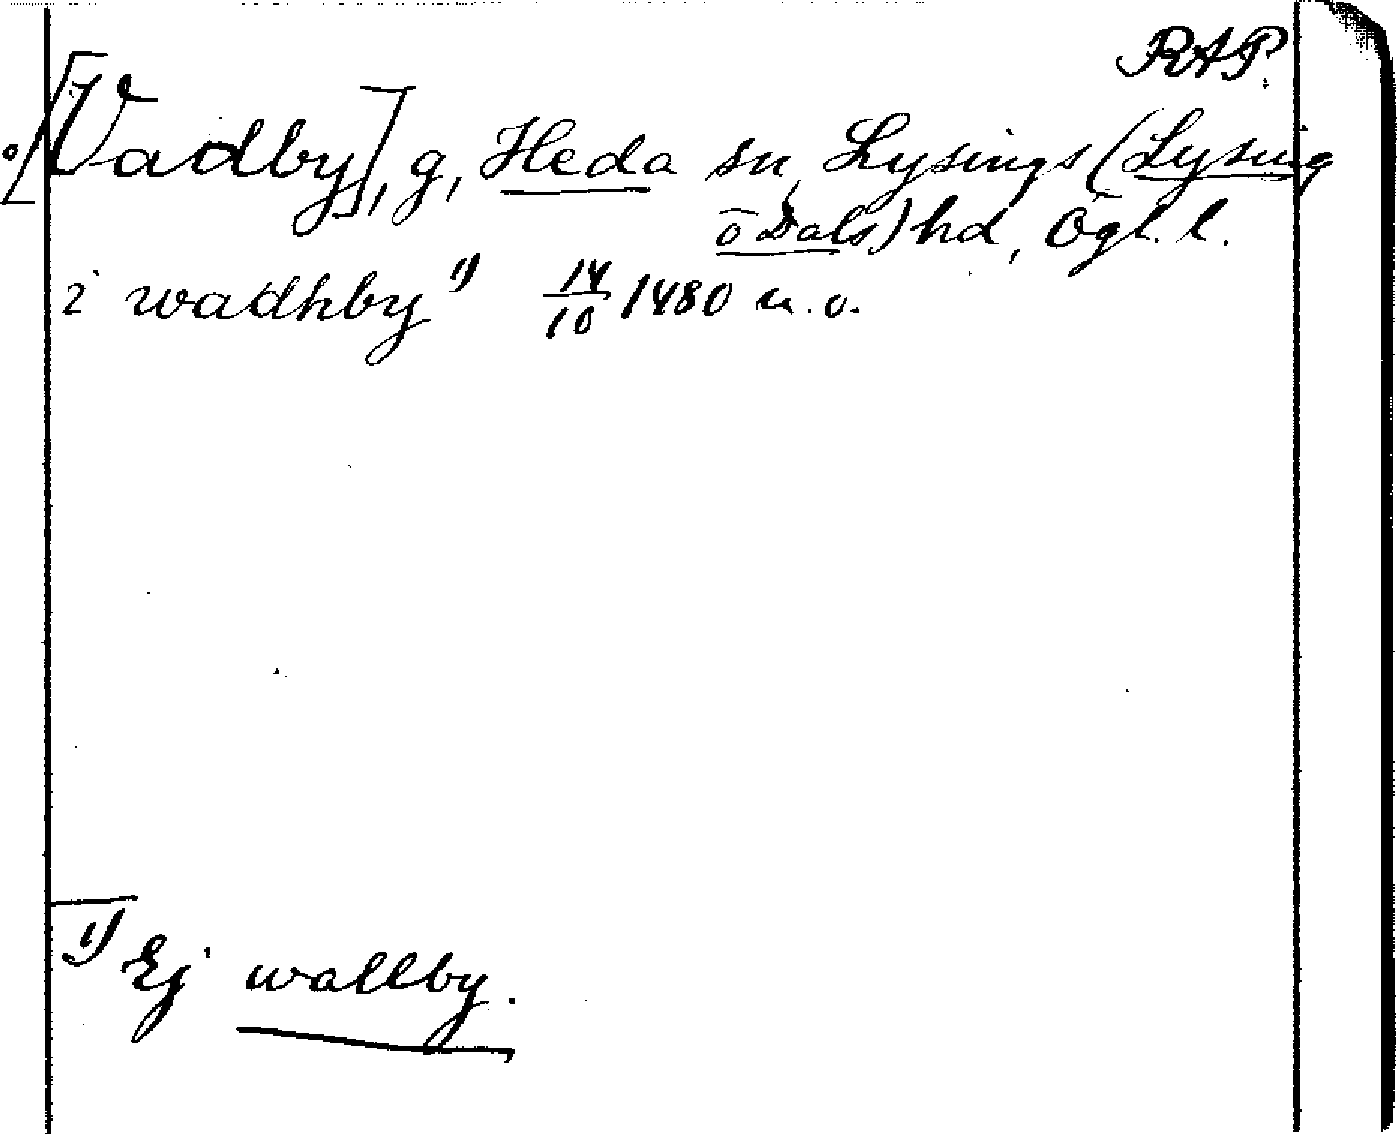 RAP.
⁰/[Vadby], g, Heda sn, Lysings (Lysing
o Dals) hd, Ögl. l.
i wadhby ¹⁾ 14/10 1480 u. o.
¹⁾ Ej wallby.